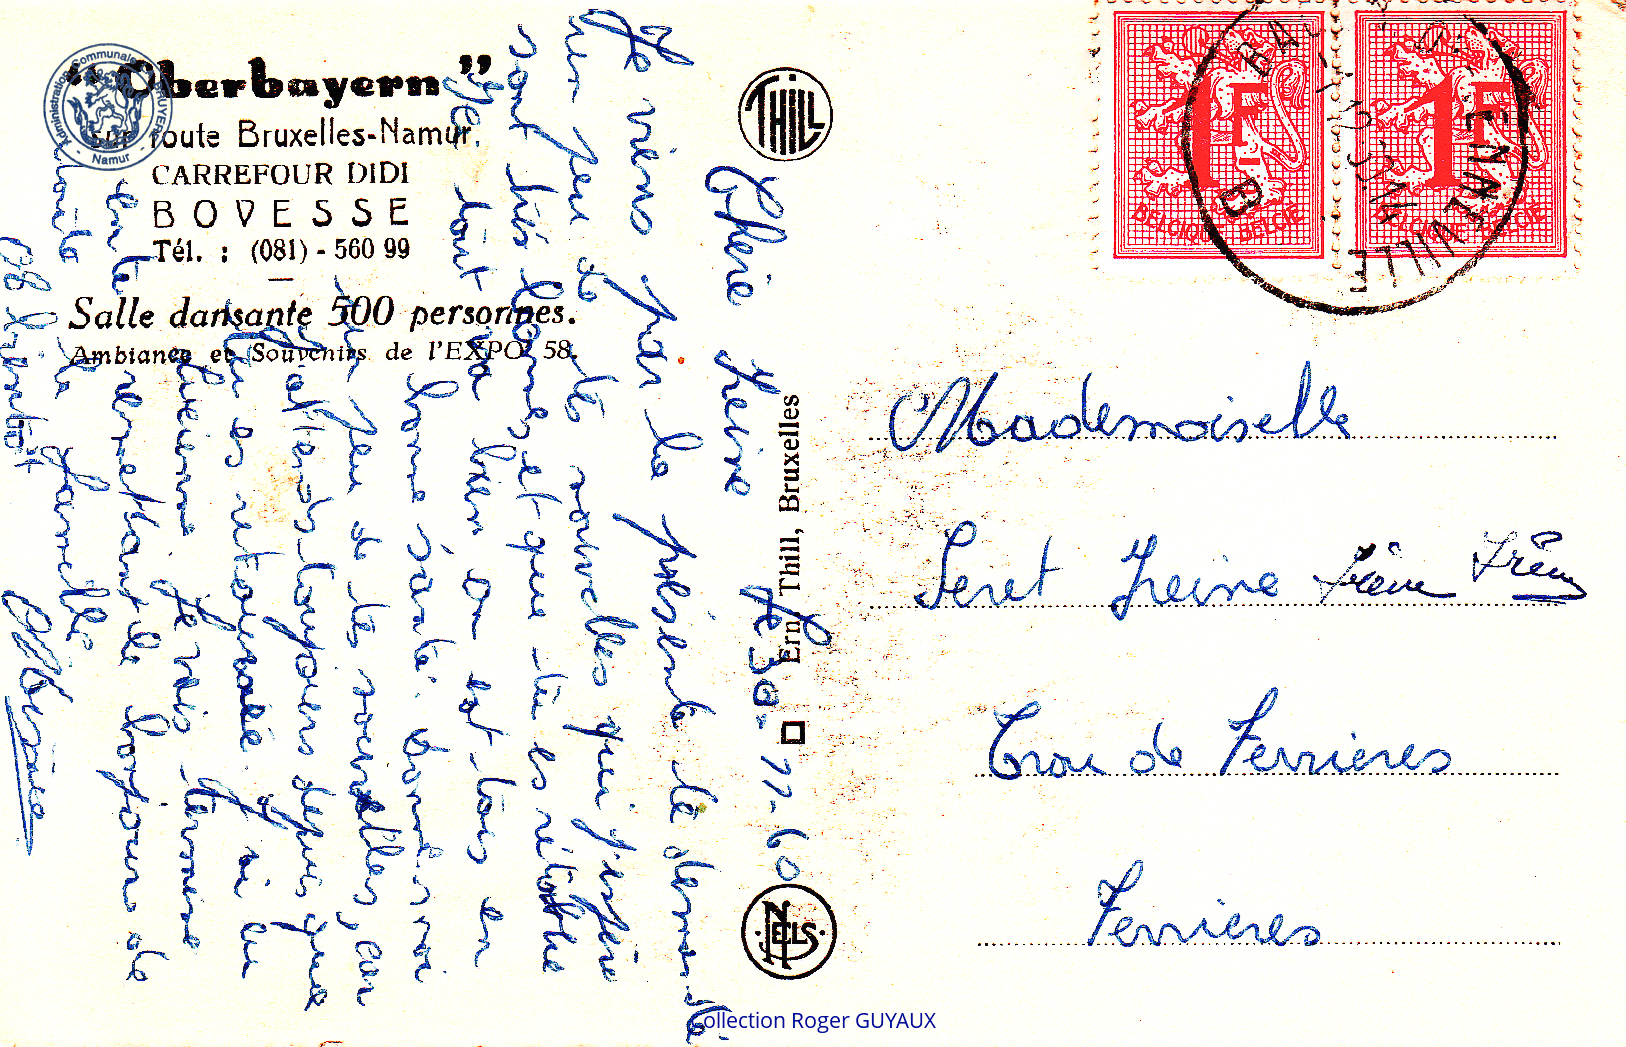 "Oberbayern"
sur route Bruxelles-Namur,
CARREFOUR DIDI
BOVESSE
Tél. : (081) - 560 99
Salle dansante 500 personnes.
Ambiance et Souvenirs de l'EXPO 58.
Administration Communale
Namur
THILL
Ern. Thill, Bruxelles
NELS
1F
BELGIQUE-BELGIE
1F
BELGIQUE-BELGIE
Le 30-11-60
Chérie
Je viens par la présente te demandé
un peu de tes nouvelles qui j'espère
sont très bonnes et que tu es rétablie
Ici tout va bien on est tous en
bonne santé. donnes moi
un peu de tes nouvelles, car
j'attends toujours depuis que
tu es retournée
Lucienne je vais terminé
en te remettant le bonjours de
toute la famille
A bientôt
Mademoiselle
Seret
Trou de Ferrieres
Ferrieres
Collection Roger GUYAUX